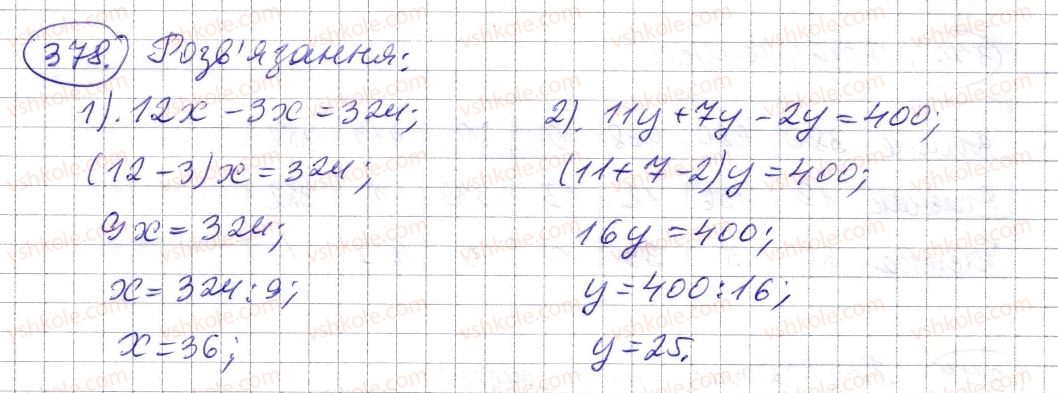 378. Розв'язання:
1). 12x - 3x = 324;
(12 - 3)x = 324;
9x = 324;
x = 324 : 9;
x = 36;
2). 11y + 7y - 2y = 400;
(11 + 7 - 2)y = 400;
16y = 400;
y = 400 : 16;
y = 25.